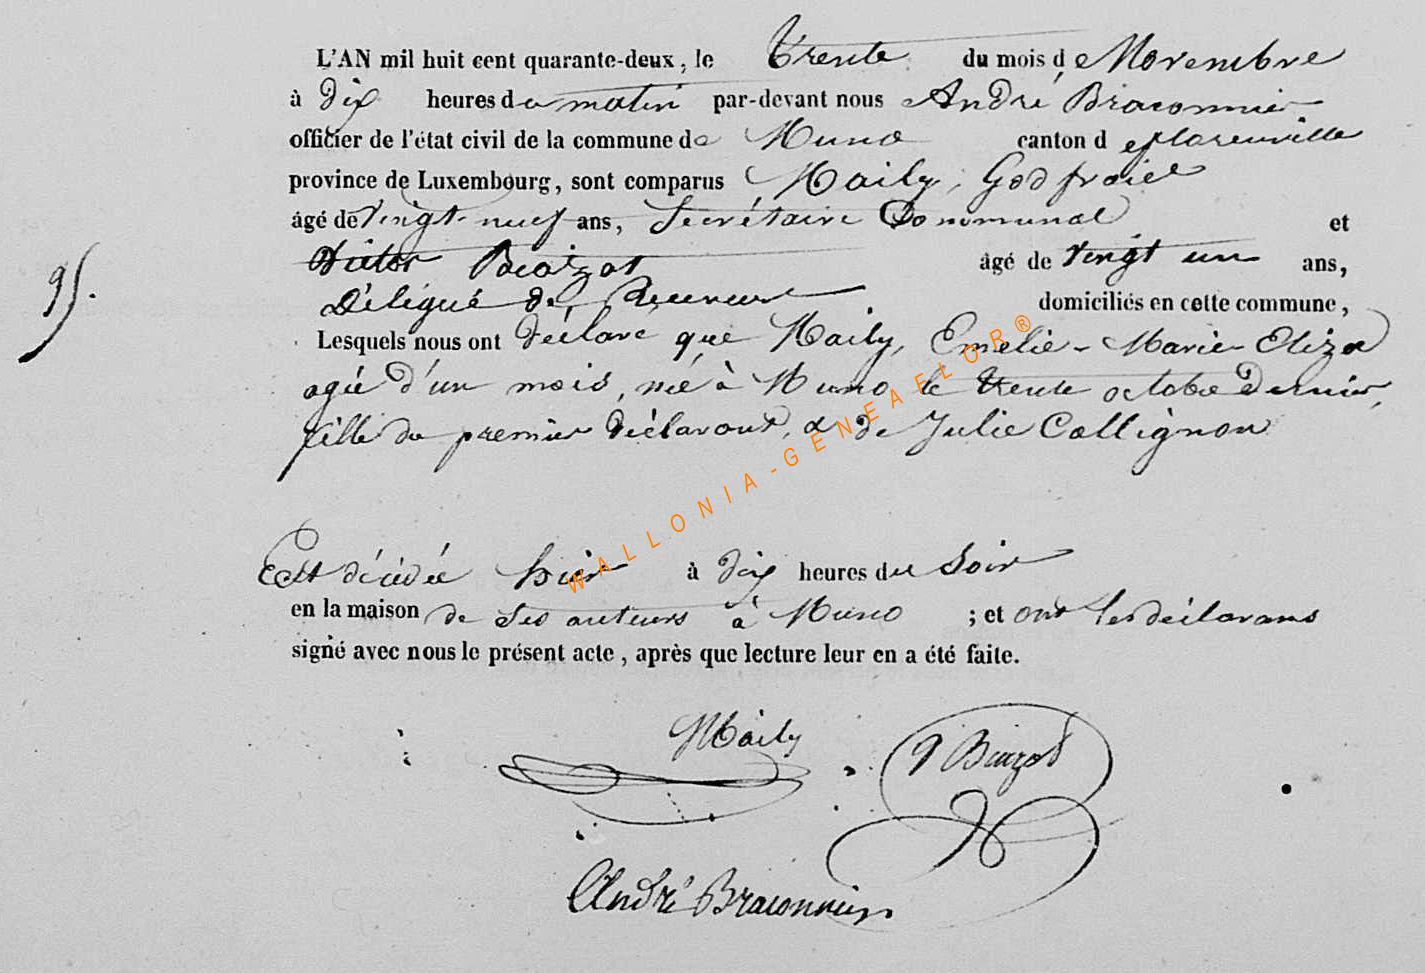 L'AN mil huit cent quarante-deux, le trente du mois de Novembre
à dix heures du matin par-devant nous André Braconnier
officier de l'état civil de la commune de Muno canton de florenville
province de Luxembourg, sont comparus Maily, Godfroid
âgé de vingt-neuf ans, Secrétaire Communal et
Victor âgé de vingt un ans,
Délégué du Receveur domiciliés en cette commune,
95.
Lesquels nous ont déclaré que Maily, Emelie-Marie-Eliza
agée d'un mois, née à Muno le trente octobre dernier,
fille du premier déclarant, & de Julie Collignon
Est décédée hier à dix heures du Soir
en la maison de ses auteurs à Muno ; et ont les déclarans
signé avec nous le présent acte, après que lecture leur en a été faite.
Maily
André Braconnier
WALLONIA-GENEAFLOR®